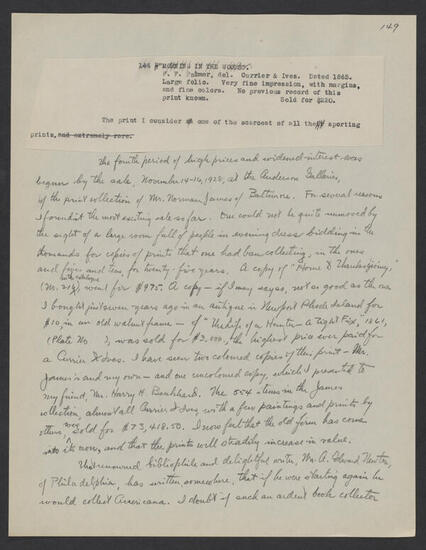 149
144 MORNING IN THE WOODS.
F. F. Palmer, del. Currier & Ives. Dated 1865.
Large folio. Very fine impression, with margins,
and fine colors. No previous record of this
print known. Sold for $220.
The print I consider one of the scarcest of all the sporting
prints, and extremely rare.
The fourth period of high prices and widened interest was
begun by the sale, November 14-16, 1928, at the Anderson Galleries,
of the print collection of Mr. Norman James of Baltimore. For several reasons
I found it the most exciting sale so far. One could not be quite unmoved by
the sight of a large room full of people in evening dress bidding in the
thousands for copies of prints that one had been collecting, in the ones
and fives and tens, for twenty-five years. A copy of "Home to Thanksgiving,"
(No. 218), went for $975. A copy – if I may say so, not as good as the one
I bought just seven years ago in an antique in Newport Rhode Island for
$10, in an old walnut frame – of "The Life of a Hunter – a tight Fix," 1861,
(Plate No ), was sold for $3,000, the highest price ever paid for
a Currier & Ives. I have seen two coloured copies of this print – Mr.
James's and my own – and one uncolored copy, which I presented to
my friend, Mr. Harry H. Benkhard. The 554 items in the James
collection, almost all Currier & Ives, with a few paintings and prints by
others, were sold for $73,418.50. I now feel that the old form has come
into its own, and that the prints will steadily increase in value.
That renowned bibliophile and delightful writer, Mr. A. Edward Newton,
of Philadelphia, has written somewhere, that if he were starting again he
would collect Americana. I doubt if such an ardent book collector